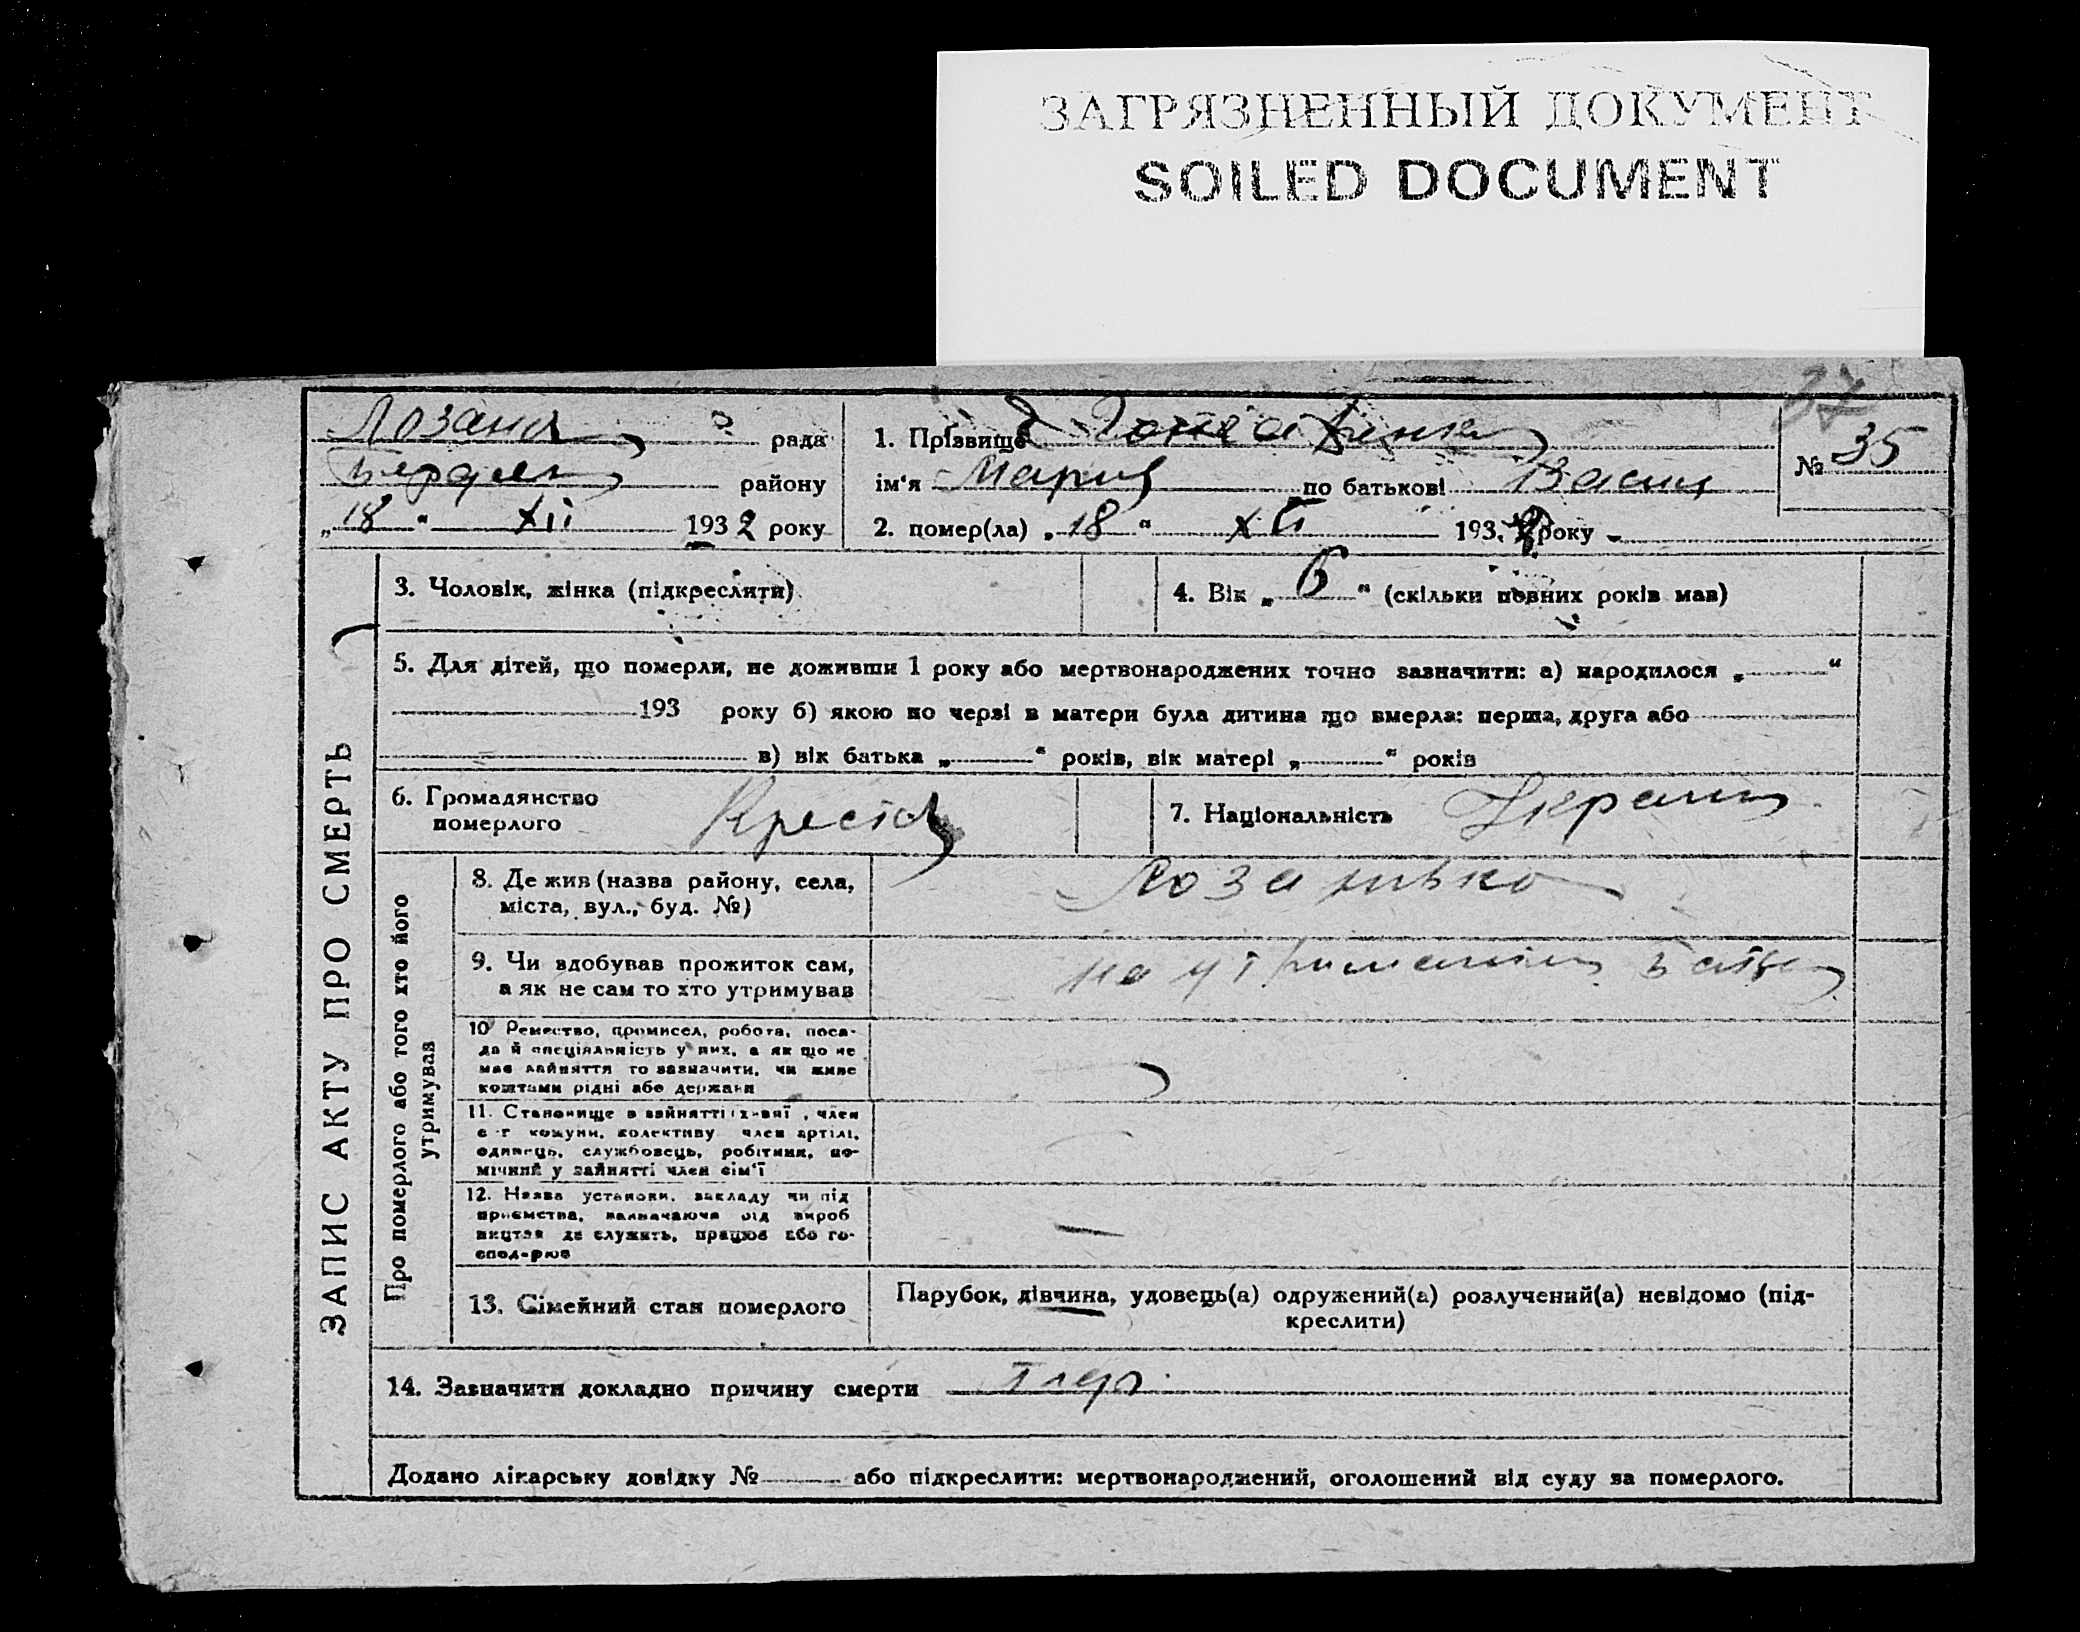 ЗАГРЯЗНЕННЫЙ ДОКУМЕНТ
SOILED DOCUMENT
37
рада
1. Прізвище
№ 35
району
ім'я Мария по батькові Васил
„18“ XII 1932 року
2. помер(ла) „18“ XII 193 року
ЗАПИС АКТУ ПРО СМЕРТЬ
3. Чоловік, жінка (підкреслити)
4. Вік „6“ (скільки повних років мав)
5. Для дітей, що померли, не доживши 1 року або мертвонароджених точно зазначити: а) народилося „ “
193 року б) якою по черзі в матери була дитина що вмерла: перша, друга або
в) вік батька „ “ років, вік матері „ “ років
6. Громадянство
померлого
7. Національність Украин
Про померлого або того хто його
утримував
8. Де жив (назва району, села,
міста, вул., буд. №)
9. Чи здобував прожиток сам,
а як не сам то хто утримував
на утриманні
10 Ремество, промисел, робота, поса-
да й спеціяльність у них, а як що не
має зайняття то зазначити, чи живе
коштами рідні або держави
11. Становище в зайнятті , член
с-г комуни, колективу член артілі,
одинець, службовець, робітник, по-
мічний у зайнятті член сім'ї
12. Назва установи, закладу чи під
приємства, зазначаючи від вироб
ництва де служить, працює або го-
спод-рює
13. Сімейний стан померлого
Парубок, дівчина, удовець(а) одружений(а) розлучений(а) невідомо (під-
креслити)
14. Зазначити докладно причину смерти
Додано лікарську довідку № або підкреслити: мертвонароджений, оголошений від суду за померлого.